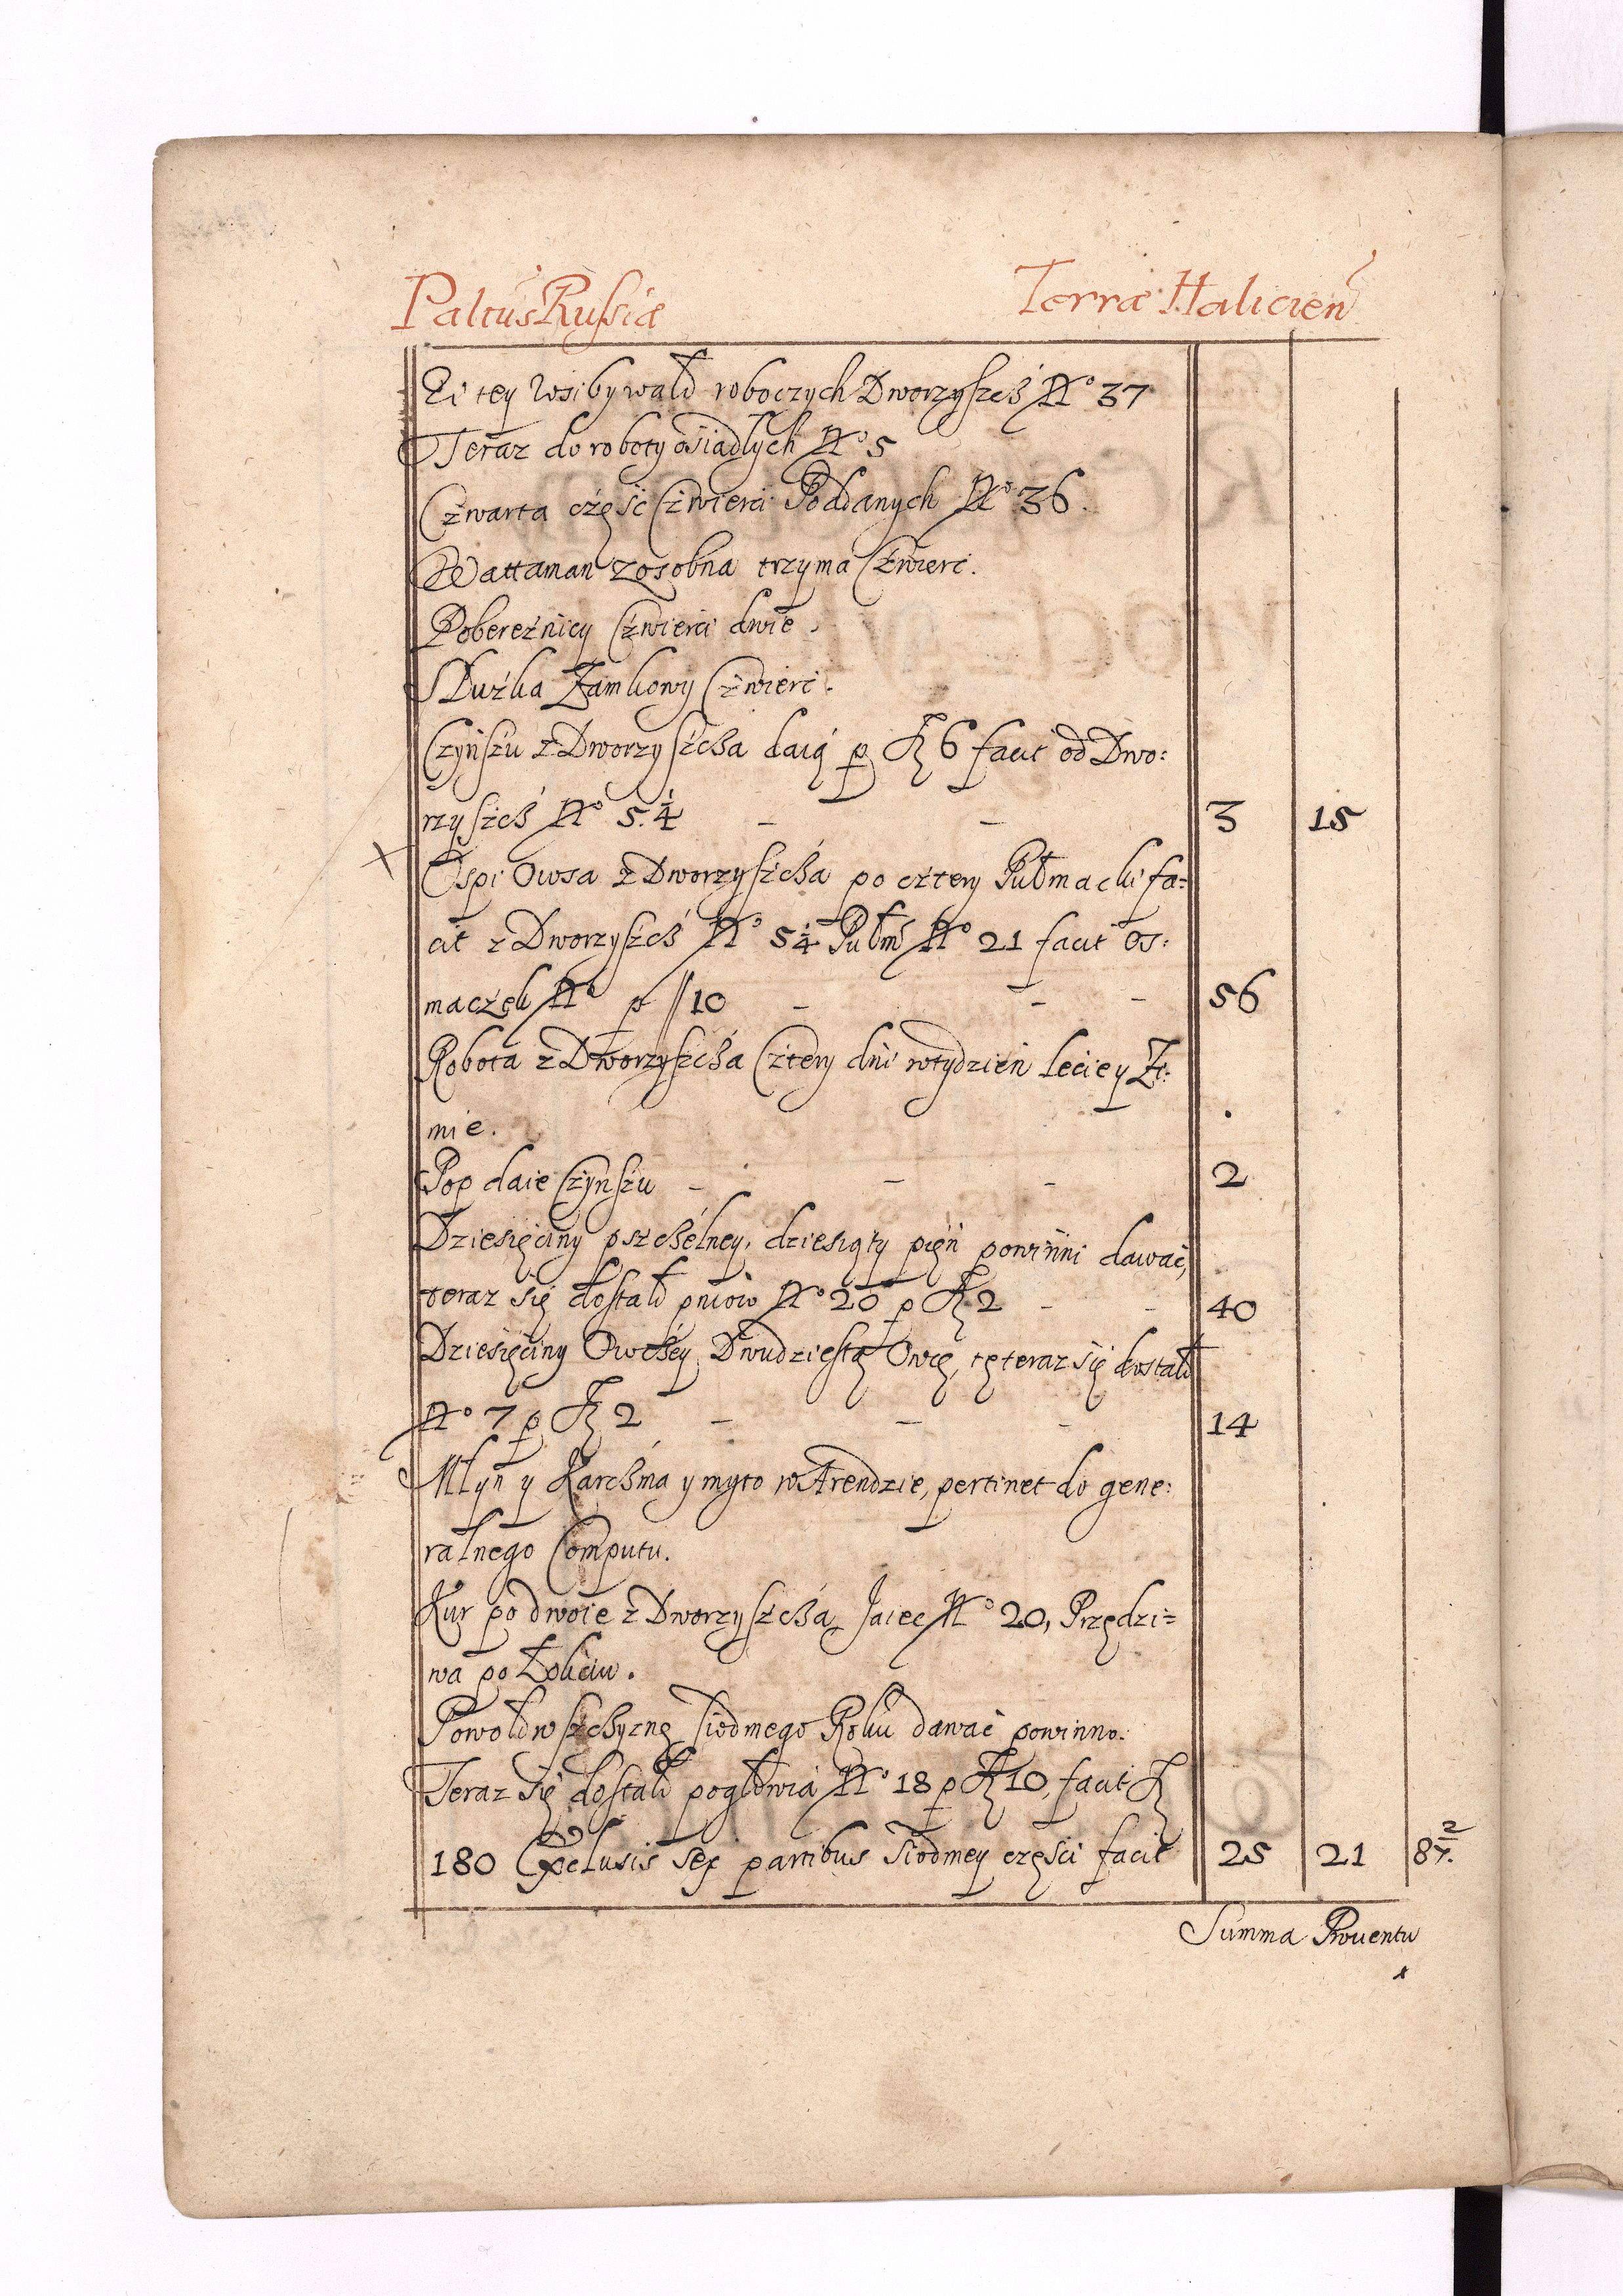 Palťus Rusiæ Terræ Halicien
W tey Wsi bywało roboczych Dworzyszcż No 37
Teraz do roboty osiadłych No 5
Czwarta część Czwierci Poddanych No 36.
Wattaman zosobna trzyma Czwierć.
Pobereżnicy Czwierci dwie.
Służka Zamkowy Czwierć.
Czynszu z Dworzyszcża daią p fl 6 facit od Dwo:
rzyszcż No 5.¼ – – 3 15
Ospi Owsa z Dworzyszcża po cztery Pułmacki fa=
cit z Dworzyszcż No 5¼ Pułm No 21 facit Os:
maczek No p // 10 – – – 56
Robota z Dworzyszcża Cztery dni w tydzień Lecie y Zi:
mie.
Pop daie Czynszu – – – 2
Dziesięciny pszcżelney, dziesiąty pień powinni dawać,
teraz się dostało pniow No 20 p fl 2 – – 40
Dziesięciny Owcżey Dwudziestą Owcę, tę teraz się dostało
No 7 p fl 2 – – – 14
Młyn y Karcżma y myto w Arendzie, pertinet do gene:
ralnego Computu.
Kur po dwoie z Dworzyszcża, Jaiec No 20, Przędzi=
wa po Łokciu.
Powołowszcżyznę siodmego Roku dawać powinno.
Teraz się dostało pogłowia No 18 p fl 10, facit fl
180 Exclusis sex partibus siodmey części facit 25 21 8 2/7.
Summa Prouentu